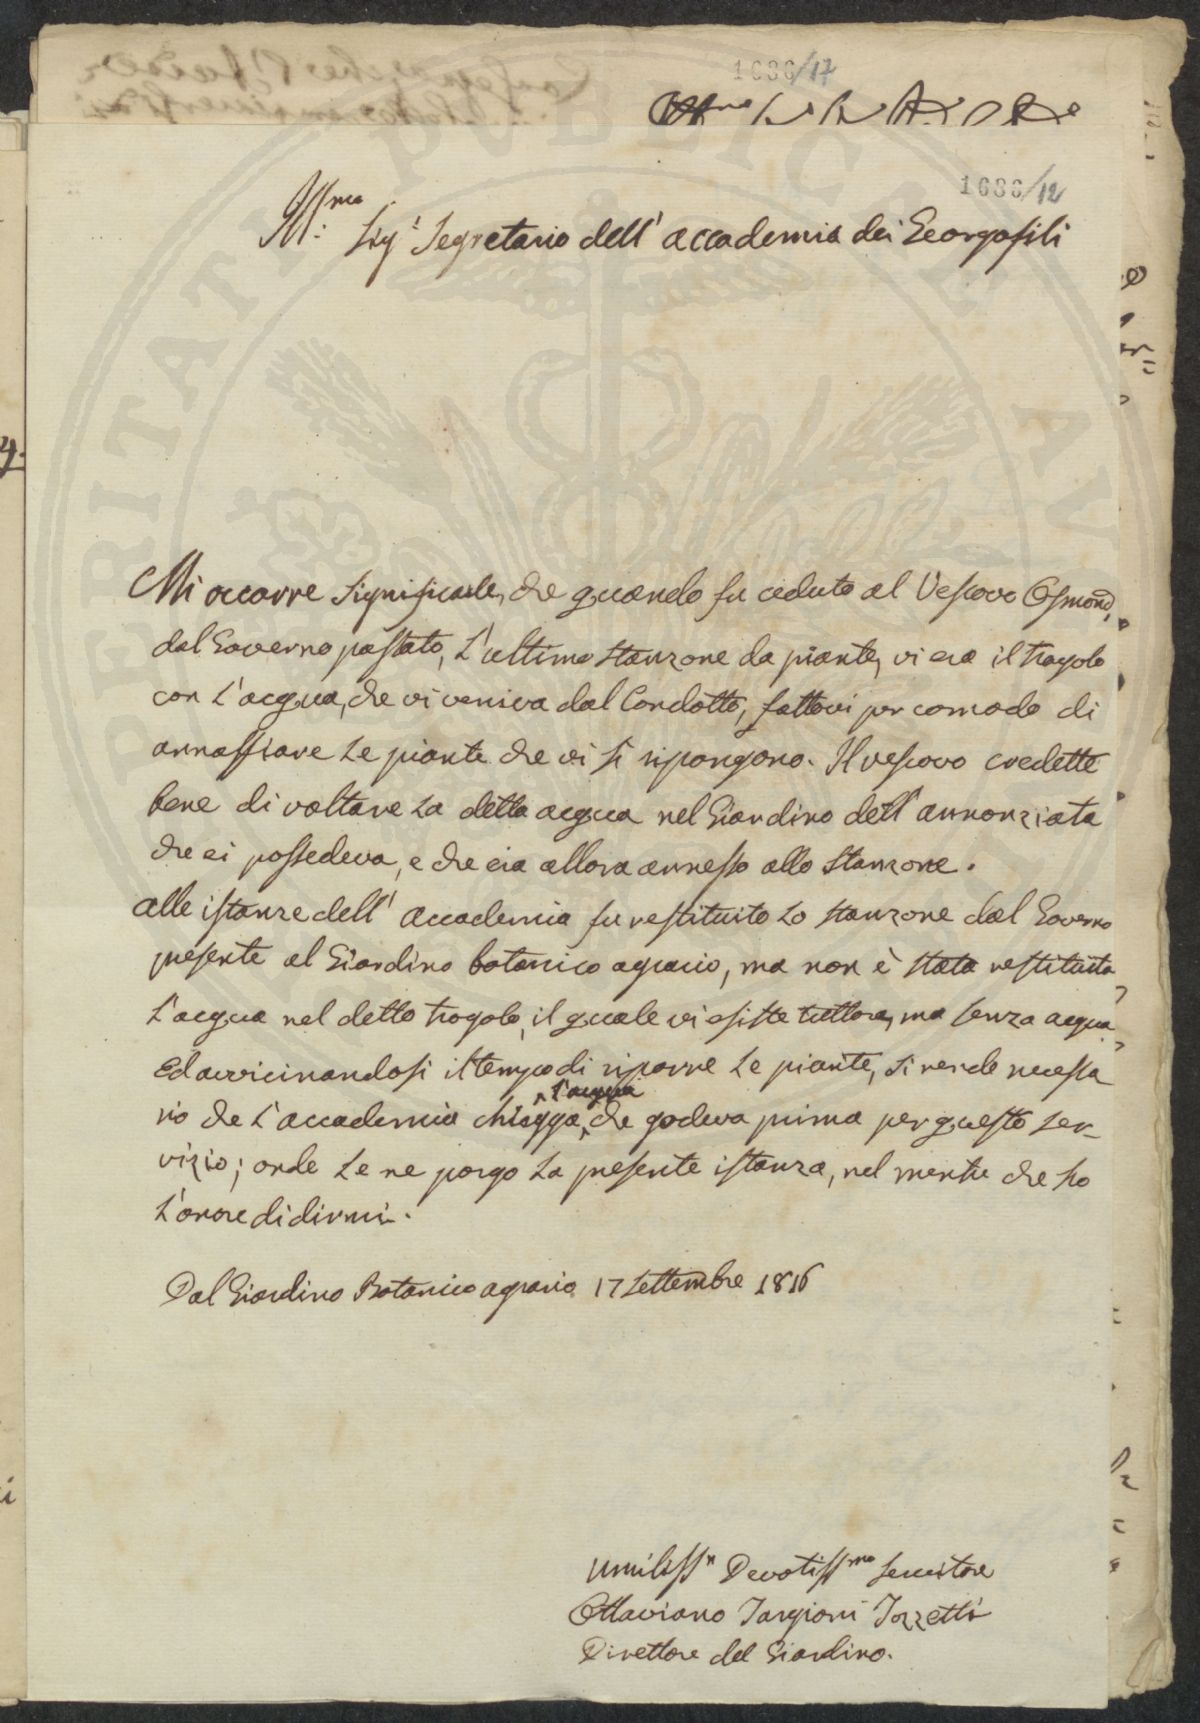 1686/17
1686/12
Ill.mo Sig.r Segretario dell'accademia dei Georgofili
Mi occorre significarle, che quando fu ceduto al Vescovo Osmond,
dal Governo passato, L'ultimo stanzone da piante, vi era il trogolo
con L'acqua, che vi veniva dal Condotto, fattovi per comodo di
annaffiare le piante che vi si ripongono. Il vescovo credette
bene di voltare La detta acqua nel Giardino dell'annonziata
che ei possedeva, e che era allora annesso allo stanzone.
alle istanze dell'accademia fu restituito Lo stanzone dal Governo
presente al Giardino botanico agrario, ma non è stata restituita
L'acqua nel detto trogolo, il quale vi esiste tuttora, ma senza acqua,
Ed avvicinandosi il tempo di riporre Le piante, si rende necessa
rio che L'accademia chiegga l'acqua, che godeva prima per questo ser-
vizio; onde Le ne porgo La presente istanza, nel mentre che ho
L'onore di dirmi.
Dal Giardino Botanico agrario 17 Settembre 1816
Umiliss.o Devotiss.mo servitore
Ottaviano Targioni Tozzetti
Direttore del Giardino.